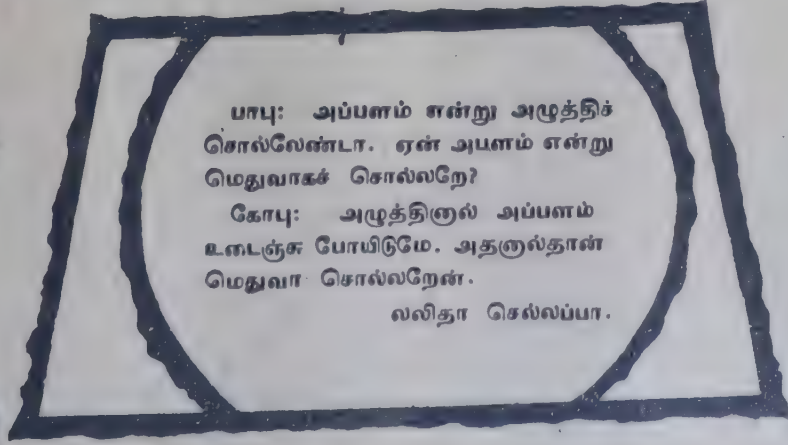 பாபு: அப்பளம் என்று அழுத்திச்
சொல்லேண்டா. ஏன் அபளம் என்று
மெதுவாகச் சொல்லறே?
கோபு: அழுத்தினால் அப்பளம்
உடைஞ்சு போயிடுமே. அதனால்தான்
மெதுவா சொல்லறேன்.
லலிதா செல்லப்பா.